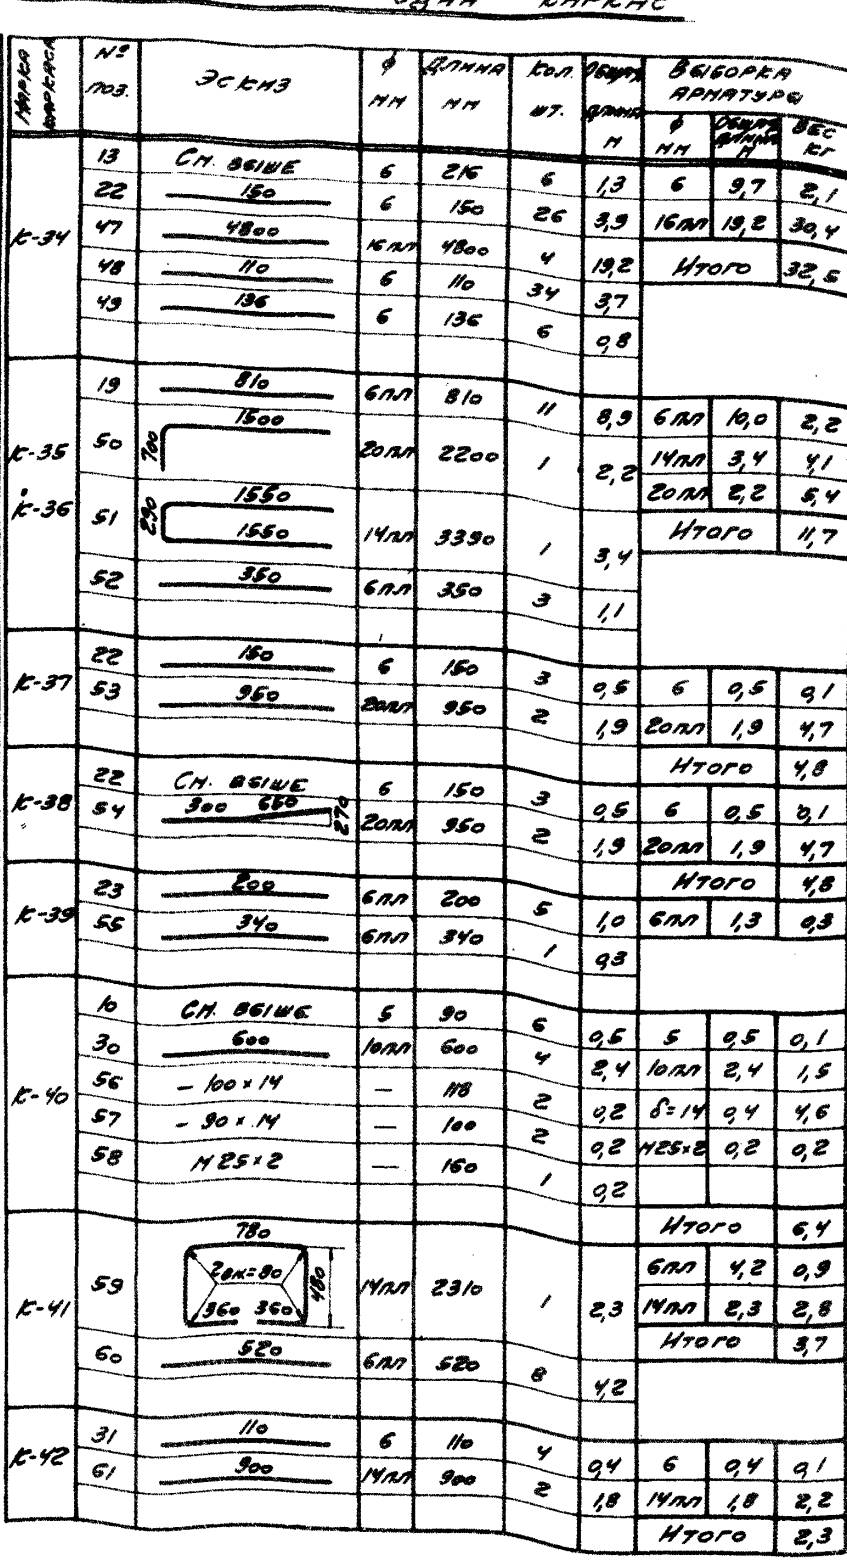 ОДИН КАРКАС
МАРКА КАРКАСА № ПОЗ. ЭСКИЗ ϕ ММ ДЛИНА ММ КОЛ. ШТ. ОБЩАЯ ДЛИНА М ВЫБОРКА АРМАТУРЫ
ϕ ММ ОБЩАЯ ДЛИНА М ВЕС КГ
К-34
13 СМ. ВЫШЕ 6 216 6 1,3 6 9,7 2,1
22 150 6 150 26 3,9 16пл 19,2 30,4
47 4800 16пл 4800 4 19,2 ИТОГО 32,5
48 110 6 110 34 3,7
49 136 6 136 6 0,8
К-35
К-36
19 810 6пл 810 11 8,9 6пл 10,0 2,2
50 700 1500 20пл 2200 1 2,2 14пл 3,4 4,1
20пл 2,2 5,4
51 290 1550 1550 14пл 3390 1 3,4 ИТОГО 11,7
52 350 6пл 350 3 1,1
К-37
22 150 6 150 3 0,5 6 0,5 0,1
53 950 20пл 950 2 1,9 20пл 1,9 4,7
ИТОГО 4,8
К-38
22 СМ. ВЫШЕ 6 150 3 0,5 6 0,5 0,1
54 300 650 270 20пл 950 2 1,9 20пл 1,9 4,7
ИТОГО 4,8
К-39
23 200 6пл 200 5 1,0 6пл 1,3 0,3
55 340 6пл 340 1 0,3
К-40
10 СМ. ВЫШЕ 5 90 6 0,5 5 0,5 0,1
30 600 10пл 600 4 2,4 10пл 2,4 1,5
56 - 100 × 14 — 118 2 0,2 δ=14 0,4 4,6
57 - 90 × 14 — 100 2 0,2 М25×2 0,2 0,2
58 М 25×2 — 160 1 0,2
ИТОГО 6,4
К-41
59 780 480 360 360 14пл 2310 1 2,3 6пл 4,2 0,9
14пл 2,3 2,8
ИТОГО 3,7
60 520 6пл 520 8 4,2
К-42
31 110 6 110 4 0,4 6 0,4 0,1
61 900 14пл 900 2 1,8 14пл 1,8 2,2
ИТОГО 2,3